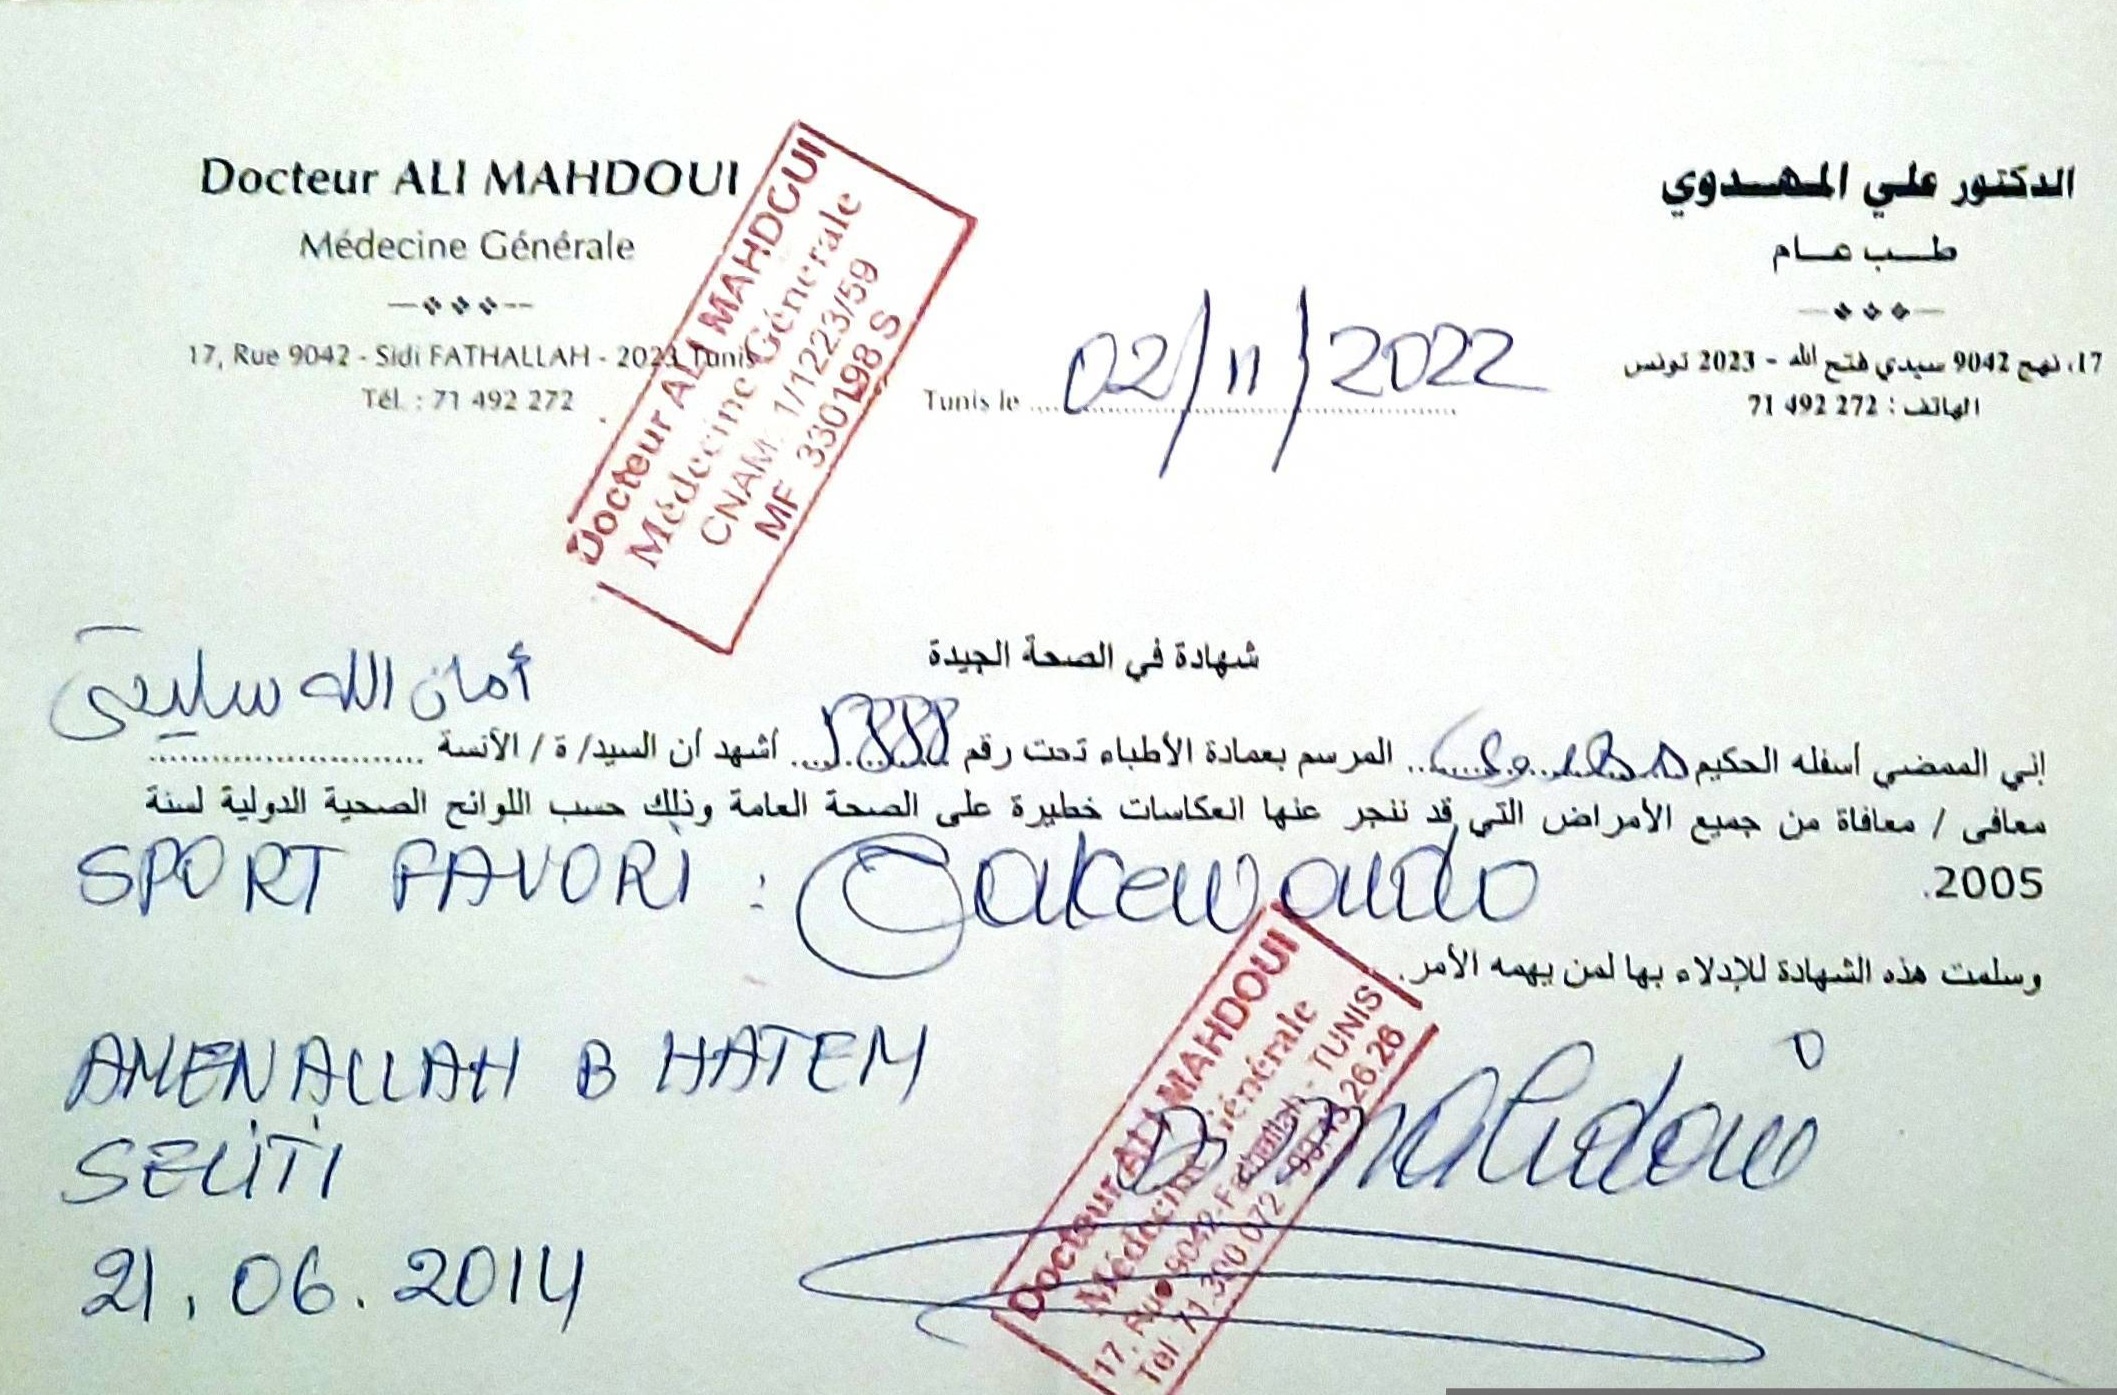 Docteur ALI MAHDOUI
Médecine Générale
17, Rue 9042 - Sidi FATHALLAH - 2023 Tunis
Tél. : 71 492 272
الدكتور علي المهدوي
طب عام
17، نهج 9042 سيدي فتح الله - 2023 تونس
الهاتف : 71 492 272
Docteur ALI MAHDOUI
Médecine Générale
CNAM. 1/1223/59
MF 3301198 S
Tunis le 02/11/2022
شهادة في الصحة الجيدة
أمان الله سليتي
إني الممضي أسفله الحكيم المرسم بعمادة الأطباء تحت رقم أشهد أن السيد/ ة / الآنسة
معافى / معافاة من جميع الأمراض التي قد تنجر عنها انعكاسات خطيرة على الصحة العامة وذلك حسب اللوائح الصحية الدولية لسنة
2005.
SPORT FAVORI : Taekwondo
وسلمت هذه الشهادة للإدلاء بها لمن يهمه الأمر.
AMENALLAH B HATEM
SELITI
21.06.2014
Docteur ALI MAHDOUI
Médecine Générale
17, Rue 9042-Fathallah - TUNIS
Tél 71.390 072 -